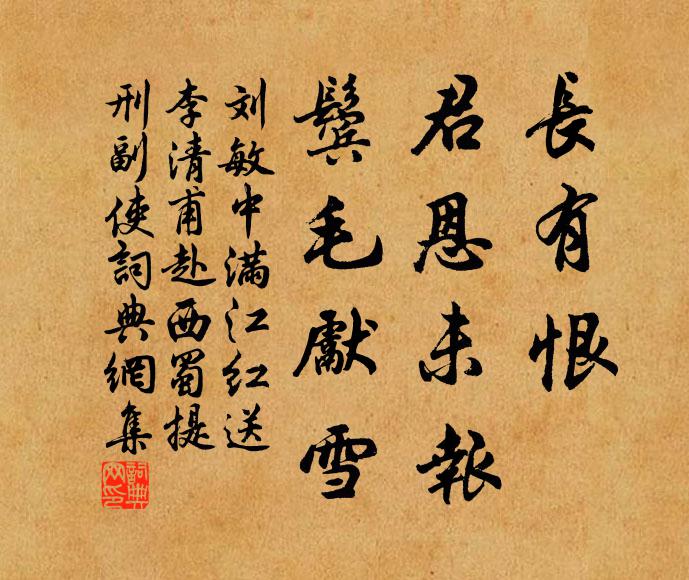 長有恨
君恩未報
鬓毛獻雪
刘敏中满江红送
李清甫赴西蜀提
刑副使詞典網集
詞典
网印